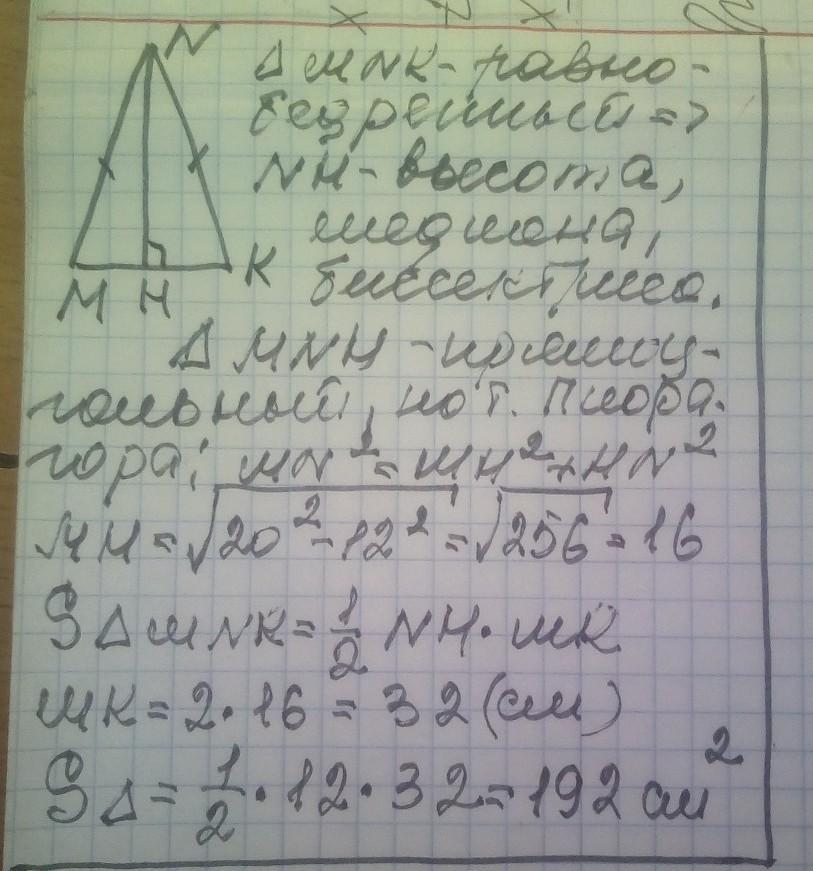 N
Δ MNK - равно-
бедренный =>
NH - высота,
медиана,
биссектриса.
M H K
Δ MNH - прямоу-
гольный, по т. Пифа-
гора: MN² = MH² + HN²
MH = √20² - 12² = √256 = 16
S Δ MNK = 1/2 NH · MK
MK = 2 · 16 = 32 (см)
S Δ = 1/2 · 12 · 32 = 192 см²